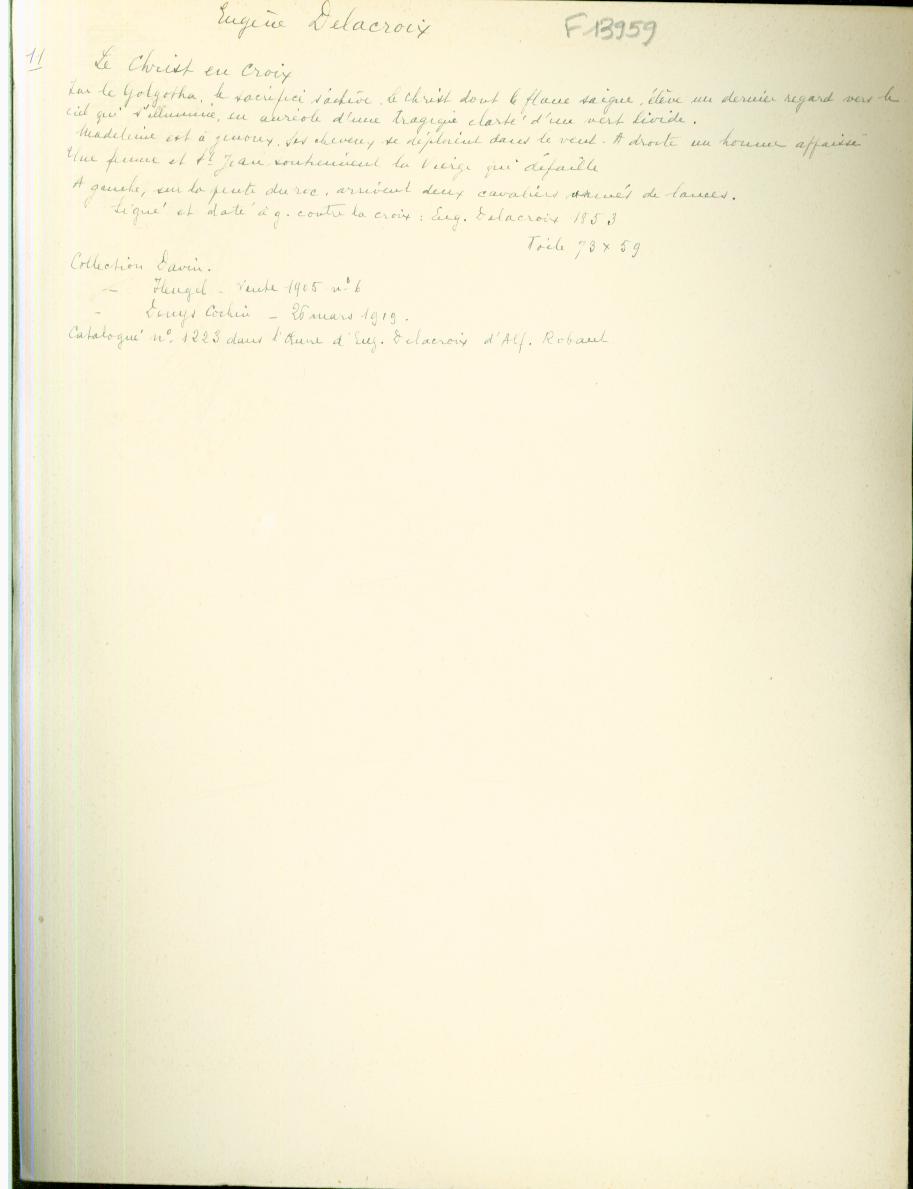 Eugène Delacroix
F 13959
11
Le Christ en Croix
Sur le Golgotha, le sacrifice s'achève, le Christ dont le flanc saigne, élève un dernier regard vers le
ciel qui s'illumine, en auréole d'une tragique clarté d'un vert livide.
Madeleine est à genoux, ses cheveux se déploient dans le vent. A droite un homme affaissé
Une femme et St Jean soutiennent la Vierge qui défaille
A gauche, sur la pente du roc, arrivent deux cavaliers armés de lances.
Signé et daté à g. contre la croix : Eug. Delacroix 1853
Toile 73 x 59
Collection Davin.
— Heugel - Vente 1905 n° 6
- Denys Cochin — 26 mars 1919.
Catalogué n° 1223 dans l'Œuvre d'Eug. Delacroix d'Alf. Robaut